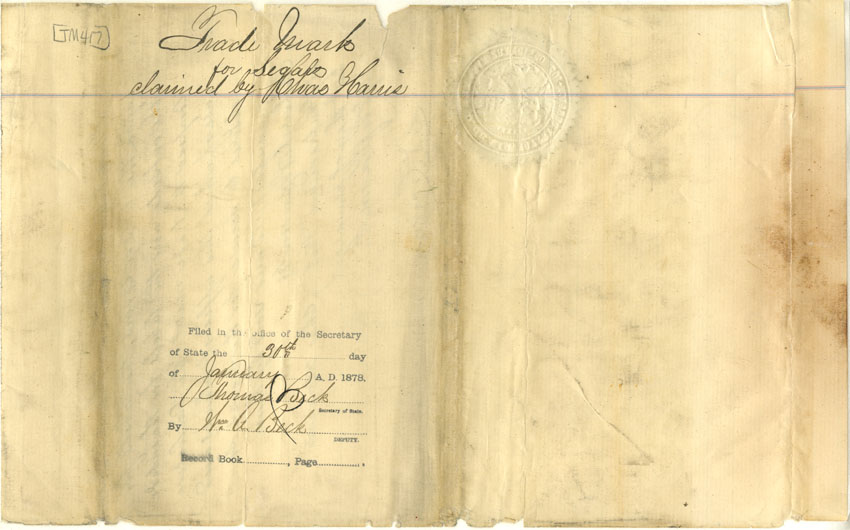 [TM417]
Trade Mark
for Segars
claimed by Chas Harris
Filed in the office of the Secretary
of State the 30th day
of January A. D. 1878.
Thomas Beck
Secretary of State.
By Wm C. Beck
DEPUTY.
Record Book , Page .